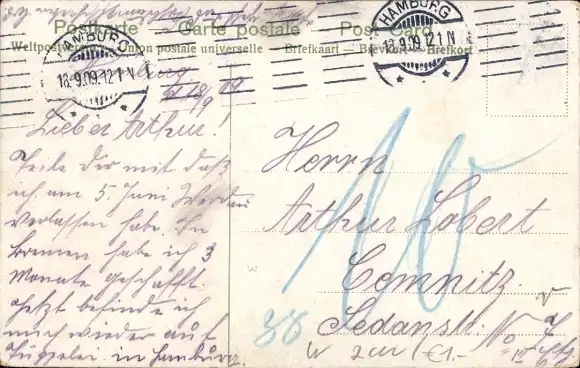 Postkarte — Carte postale Post Card
Weltpostverein — Union postale universelle — Briefkaart — Brevkort — Brefkort
HAMBURG
18.9.09.12-1N
HAMBURG
18.9.09.12-1N
18/9 09
Lieber Arthur!
Teile dir mit daß
ich am 5. Juni Werdau
verlassen habe. In
Bremen habe ich 3
Monate geschafft.
Jetzt befinde ich
mich wieder auf
in Hamburg.
Herrn
Arthur Lobert
Cemnitz.
Sedanstr. No 7
10
38